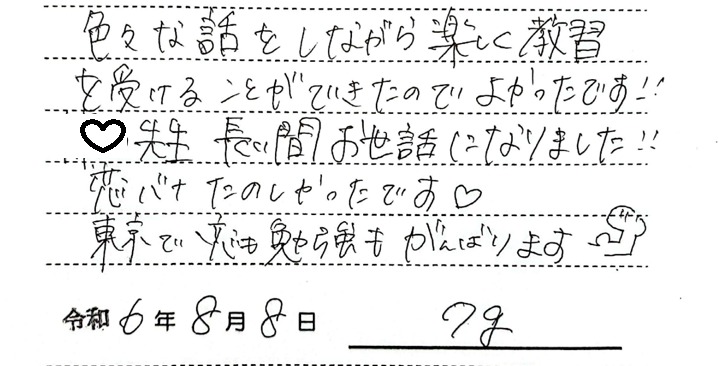 色々な話をしながら楽しく教習
を受けることができたのでよかったです!!
♡先生 長い間お世話になりました!!
恋バナたのしかったです♡
東京で恋も勉強もがんばります
令和6年8月8日